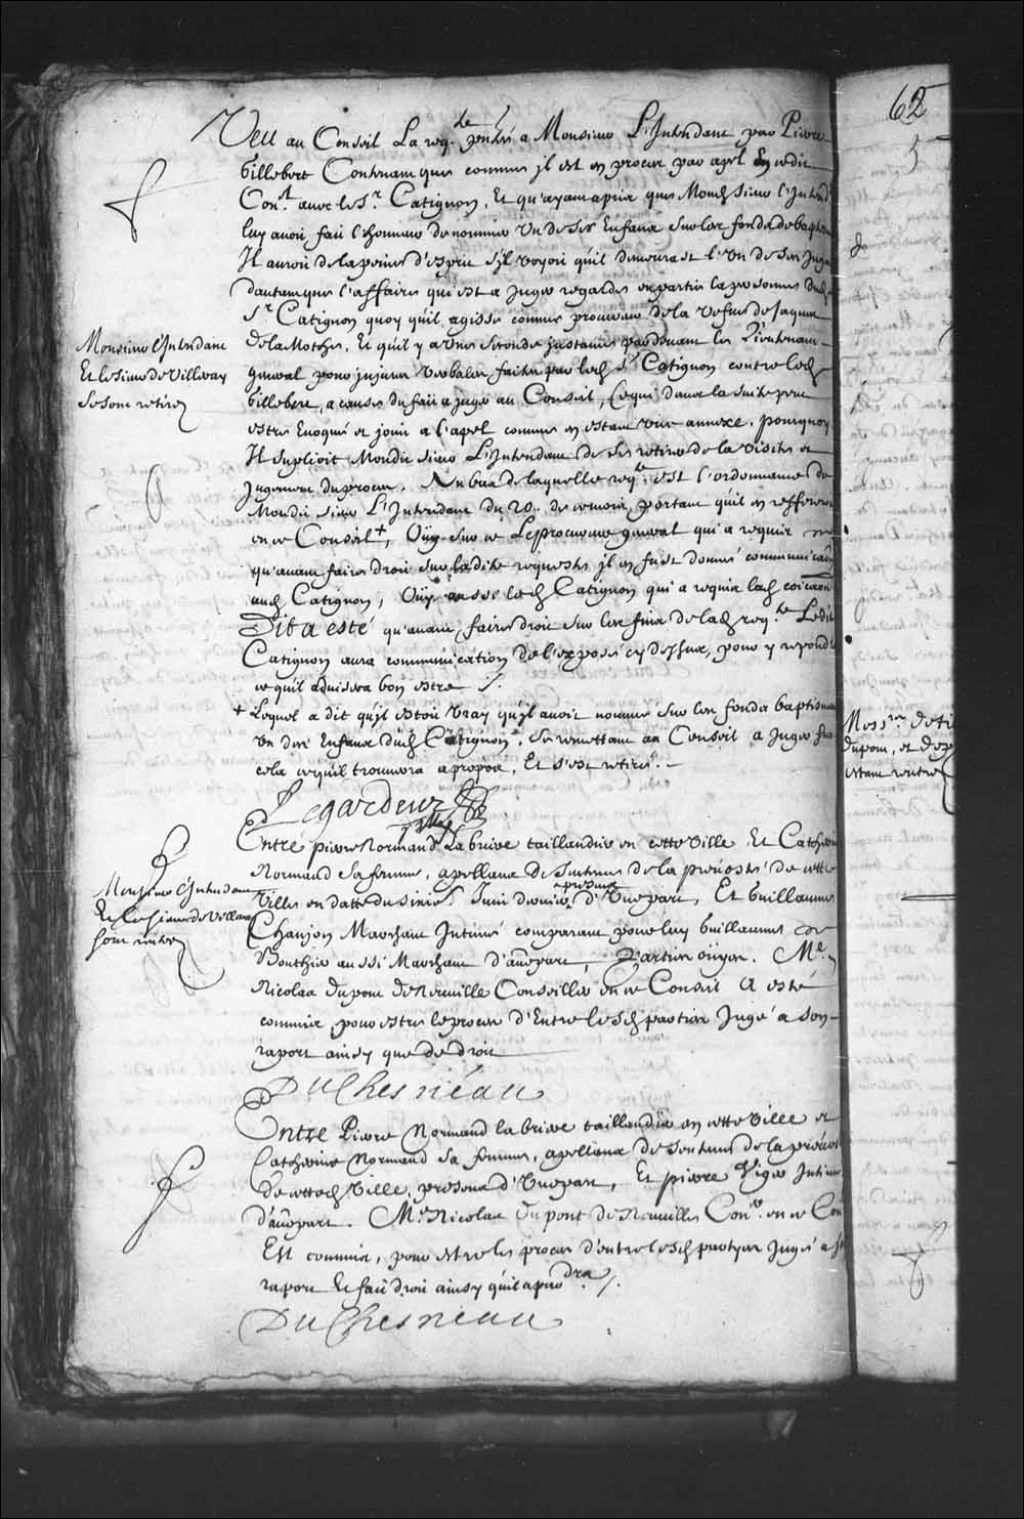 62
Veu au Conseil La req.te pntée a Monsieur L'Intendant par Pierre
Gillebert Contenant que comme jl est en procez par apel En cedit
Con.el auec le S.r Catignon, Et qu'ayant apris que Mond Sieur l'Intend
luy auoit fait l'honneur de nommer Un de ses Enfans sur les fonds de baptes
Il auroit de la peine d'esprit s'jl voyoit qu'il demeurast l'Vn de ses Juges
dautant que l'affaire qui est a juger regarde en partie la personne dud
S.r Catignon quoy quil agisse comme procureur de la Vefue de Jaques
de la Mothe, Et quil y a Une seconde jnstance pardeuant le Lieutenant
general pour jnjures Verbales faites par led S.r Catignon contre led
Gillebert, a cause du fait a juger au Conseil, Lequel dans la suite peut
estre Euoqué et joint a l'apel comme en estant vne annexe. pourquoy
Il suplioit Mondit sieur L'Intendant de se retirer de la Visite et
Jugement du procez. Au bas de laquelle req.te est l'ordonnance de
Mondit sieur L'Intendant du 20. de ce mois, portant quil en refferera
en ce Conseil +, Oüy sur ce Le procureur general qui a requis
qu'auant faire droit sur ladite requeste jl en fust donné communicaon
aud Catignon, Oüy aussi led Catignon qui a requis lad coicaon
Dit a esté qu'auant faire droit sur les fins de lad req.te Ledit
Catignon aura communication de l'exposé cy dessus, pour y repondre
ce qu'il aduisera bon estre ./.
+ Lequel a dit qu'jl estoit Vray qu'jl auoit nommé sur les fonds baptismaux
Vn des Enfans dud Catignon, se remettant au Conseil a Juger sur
cela ce qu'il trouuera apropos, Et s'est retiré. —
Monsieur l'Intendant
Et le sieur de Villeray
se sont retirez
Legardeur
Entre pierre Normand La briere taillandier en cette Ville Et Catherine
Normand sa femme, apellans de Sentence de la preuosté de cette
Ville en datte du sixie.e Juin dernier, presens d'Vne part, Et Guillaume
Chanjon Marchant Intimé comparant pour luy Guillaume
Bouthier aussi Marchant d'autre part, Parties oüyes. M.e
Nicolas dupont de Neuuille Conseiller en ce Conseil A esté
commis, pour estre le procez d'Entre lesd parties Jugé a son
raport ainsy que de droit
Monsieur l'Intendant
Et le sieur de Villeray
sont retirez
DuChesneau
Entre Pierre Normand la briere taillandier en cette Ville et
Catherine Normand sa femme, apellans de Sentence de la preuosté
de cetted Ville, presens d'Vne part, Et pierre Viger Intimé
d'autre part. M.e Nicolas Dupont de Neuuille Con.er en ce Con
Est commis, pour estre le procez d'entre lesd partyes Jugé a son
raport Et fait droit ainsy qu'il apnDra ./.
DuChesneau